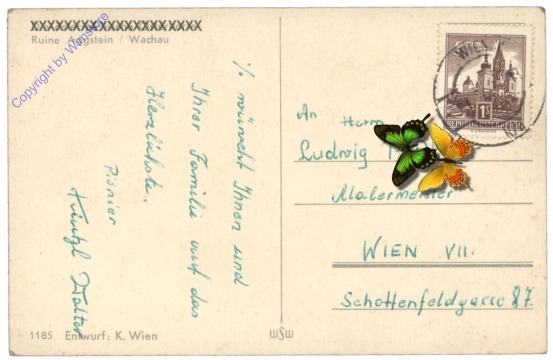 XXXXXXXXXXXXXXXXXXXXXXX
Ruine Aggstein / Wachau
Copyright by Winstore
% wünscht Ihnen und
Ihrer Familie auf das
Herzlichste.
Pionier
Walter
1185 Entwurf: K. Wien
WSW
WIEN
1S
REPUBLIK ÖSTERREICH
An
Herrn
Ludwig
Malermeister
WIEN VII.
Schottenfeldgasse 87.